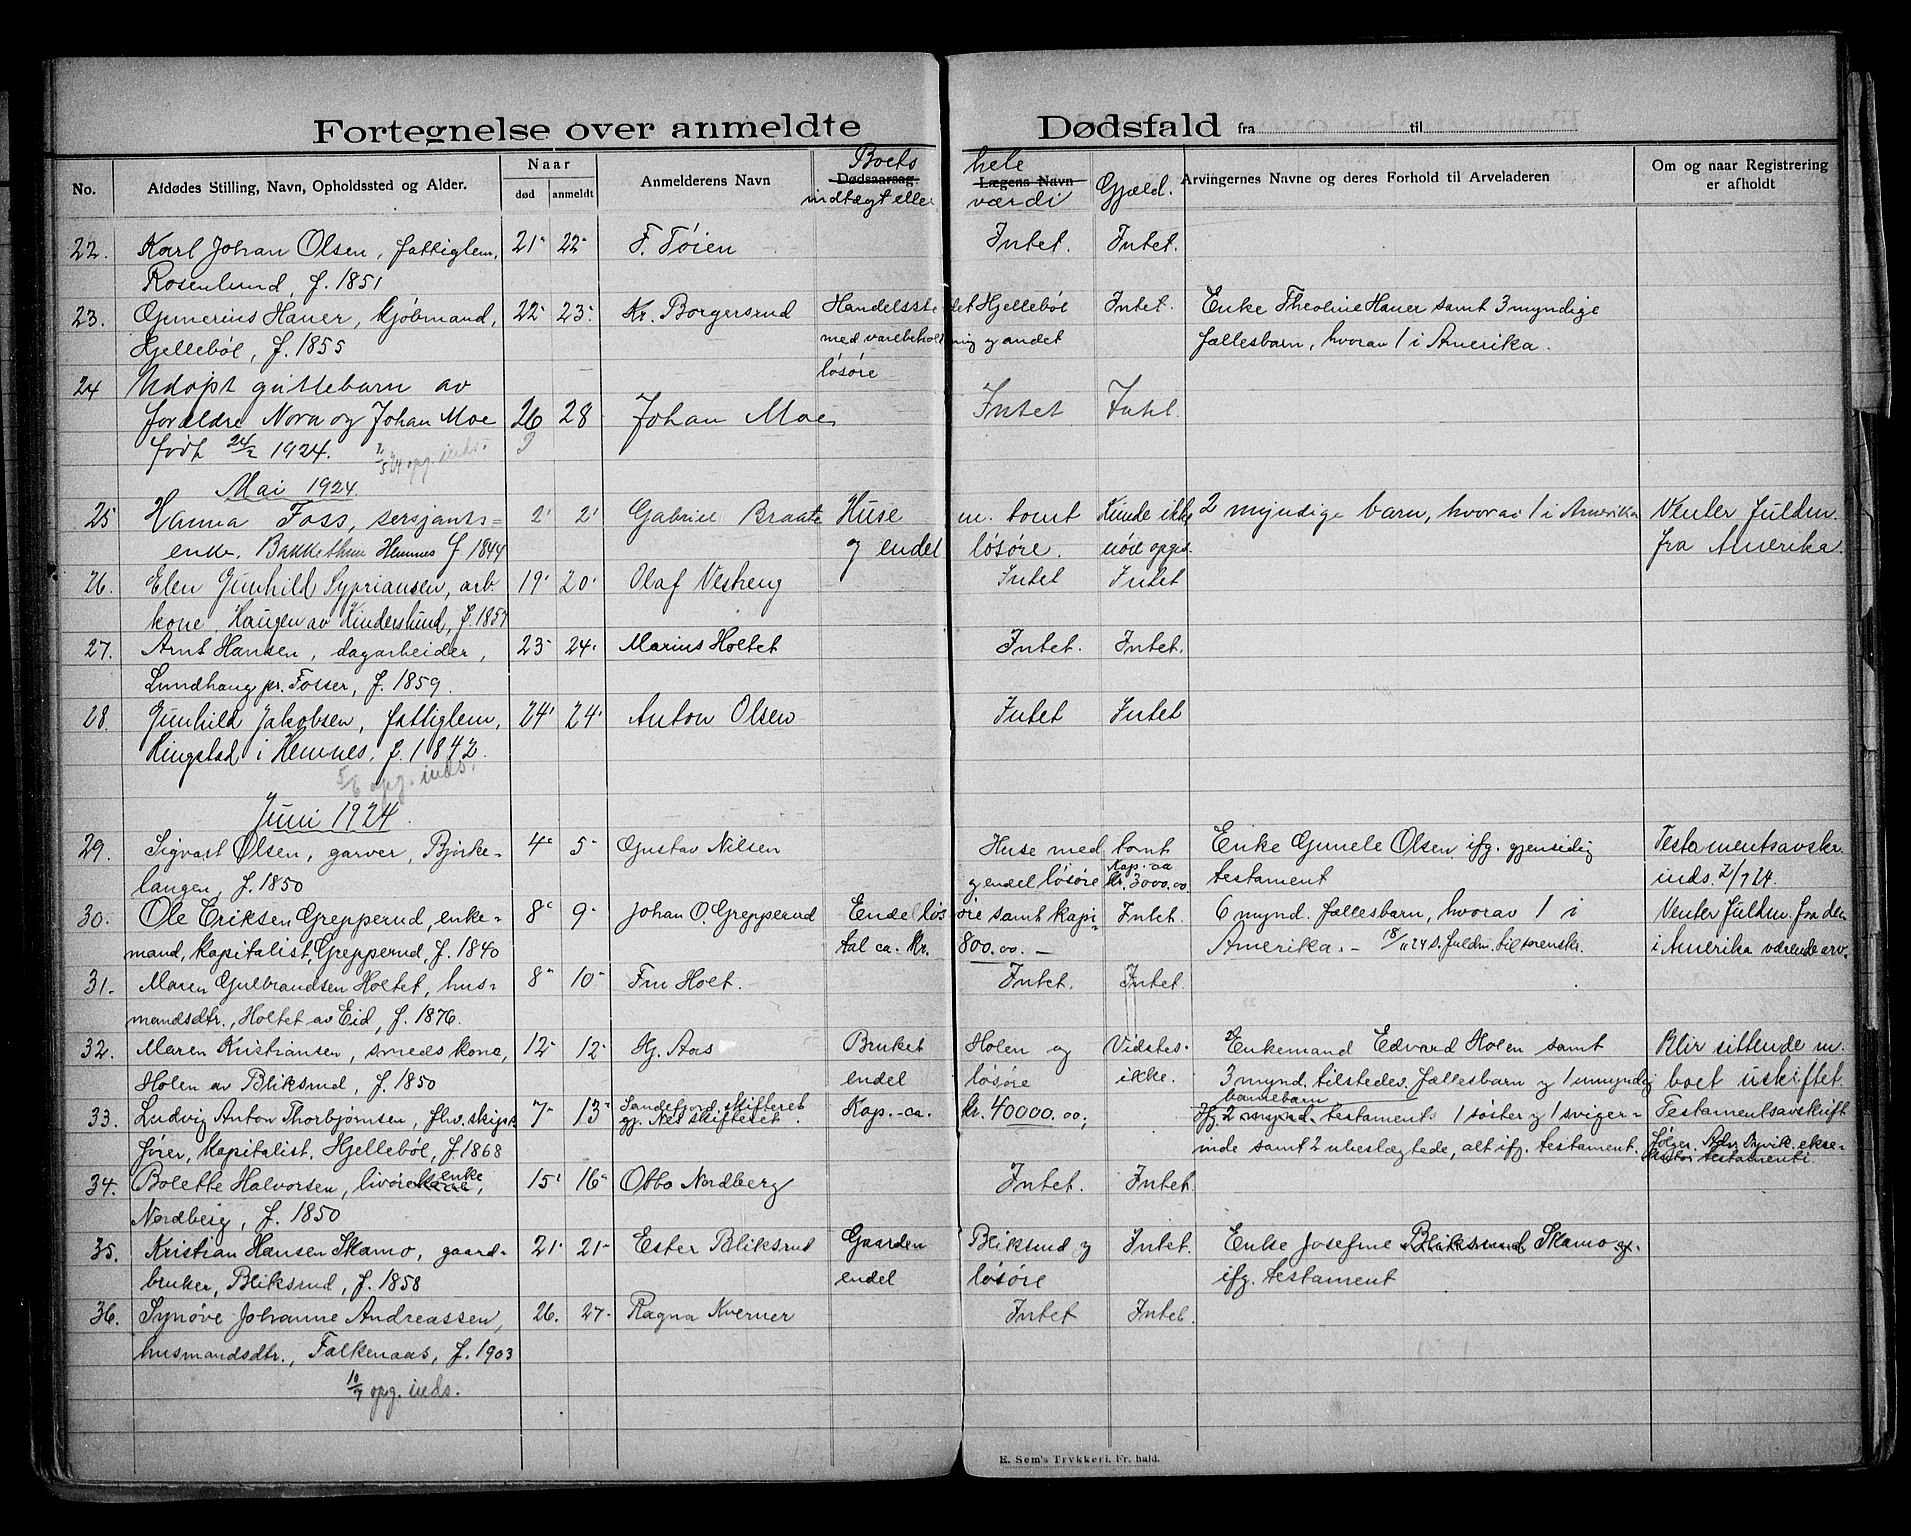 Fortegnelse over anmeldte Dødsfald fra til
No. Afdødes Stilling, Navn, Opholdssted og Alder. Naar død anmeldt Anmelderens Navn Dødsaarsag. Boets indtægt eller Lægens Navn hele værdi Gjæld. Arvingernes Navne og deres Forhold til Arveladeren Om og naar Registrering er afholdt
22. Karl Johan Olsen, fattiglem, 21 22 F. Töien Intet. Intet.
Rosenlund, f. 1851
23. Gunerius Haner, kjöbmand, 22 23 Kr. Borgersrud Handelsstedet Hjelleböl Intet. Enke Theoline Haner samt 3 myndige
Hjelleböl, f. 1855 med varebeholdning og andet fællesbarn, hvorav 1 i Amerika.
lösöre
24 Udöpt guttebarn av
forældre Nora og Johan Moe 26 28 Johan Moe Intet Intet.
født 24/2 1924. 2/5 24 opg. inds.
Mai 1924.
25 Hanna Foss, sersjants= 2 2 Gabriel Braate Huse m. tomt Kunde ikke 2 myndige barn, hvorav 1 i Amerika Venter fuldm.
enke, Bakkethun Hemnes f 1844 og endel løsøre. nöie opgis. fra Amerika.
26. Elen Gunhild Sypriansen, arb. 19 20 Olaf Vestreng Intet Intet
kone, Haugen av Kinderslund, f. 1857
27. Arnt Hansen, dagarbeider, 23 24 Marius Holtet Intet. Intet.
Lundhaug pr. Fosser, f. 1859.
28. Gunhild Jakobsen, fattiglem, 24 24 Anton Olsen Intet Intet
Ringstad i Hemnes, f. 1842.
5/6 opg. inds.
Juni 1924.
29. Sigvart Olsen, garver, Björke- 4 5 Gustav Nilsen Huse med tomt Enke Gunele Olsen ifg. gjensidig Testamentsavskr.
langen, f. 1850 og endel lösöre Kap. ca kr. 3000.00 testament inds. 2/7 24.
30. Ole Eriksen Grepperud, enke- 8 9 Johan O. Grepperud Endel lösöre samt kapi- Intet. 6 mynd. fællesbarn, hvorav 1 i Venter fuldm. fra den
mand, kapitalist, Grepperud, f. 1840 tal ca. kr. 800.00.— Amerika. - 18/11 24 s. fuldm. til sorenskr. i Amerika værende arv.
31. Maren Gulbrandsen Holtet, hus- 8 10 Fru Holt. Intet. Intet.
mandsdtr., Holtet av Eid, f. 1876.
32. Maren Kristiansen, smeds kone, 12 12 Hj. Aas Bruket Holen og Vidstes- Enkemand Edvard Holen samt Blir sittende m.
Holen av Bliksrud, f. 1850 endel lösöre ikke. 3 mynd. tilstedev. fællesbarn og 1 umyndig boet uskiftet.
barnebarn
33. Ludvig Anton Thorbjørnsen, fhv. skips- 7 13 Sandefjord skifteret gj. Nes skifteret. Kap. - ca. kr. 40000.00; Ifg. 2 mynd. testament. 1 søster og 1 sviger- Testamentsavskrift
fører, kapitalist, Hjelleböl, f. 1868 inde samt 2 ubeslægtede, alt ifg. testament. følger. Adv. Dyvik. ekse-
kutor testamenti.
34. Bolette Halvorsen, livöre kone enke, 15 16 Otto Nordberg Intet. Intet.
Nordberg, f. 1850
35. Kristian Hansen Skamo, gaard- 21 21 Ester Bliksrud Gaarden Bliksrud og Intet. Enke Josefine Bliksrud Skamo og.
bruker, Bliksrud, f. 1858 endel lösöre ifg. testament
36. Synöve Johanne Andreassen, 26. 27 Ragna Kverner Intet Intet.
husmandsdtr., Falkenaas, f. 1903
10/7 opg. inds.
E. Sem's Trykkeri, Fr.hald.